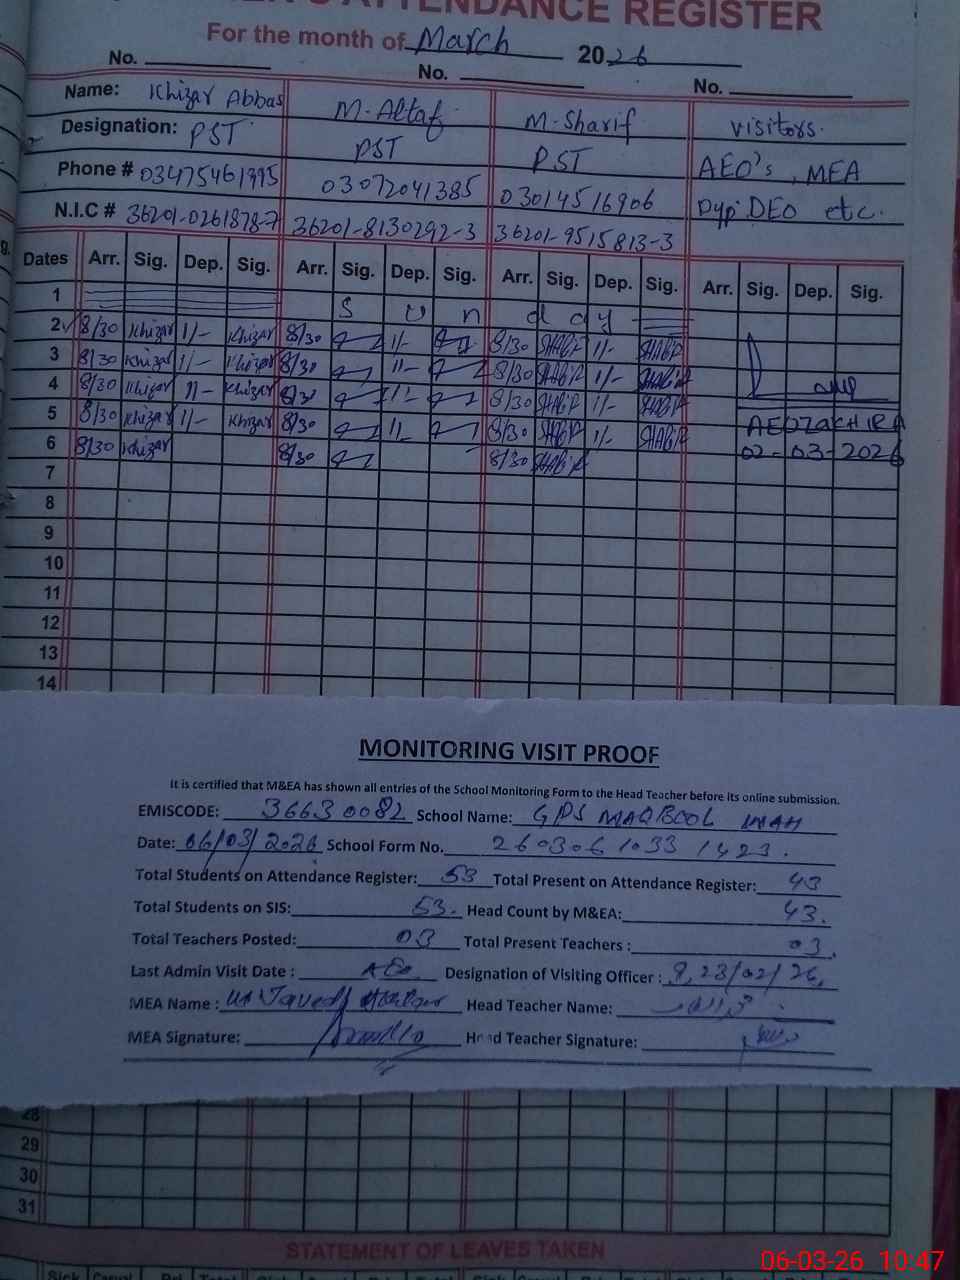 ATTENDANCE REGISTER
For the month of March 2026
No. No. No.
Name: Khizar Abbas M-Altaf M-Sharif visitors.
Designation: PST PST PST AEO's, MEA
Phone # 03475461995 03072041385 03014516906 Dyp:DEO etc.
N.I.C # 36201-0261878-7 36201-8130292-3 36201-9515813-3
Dates Arr. Sig. Dep. Sig. Arr. Sig. Dep. Sig. Arr. Sig. Dep. Sig. Arr. Sig. Dep. Sig.
1 S u n d a y
2 8/30 Khizar 1/- Khizar 8/30 1/- 8/30 1/-
3 8/30 Khizar 1/- Khizar 8/30 11- 8/30 1/-
4 8/30 Khizar 11- Khizar 8/30 1/- 8/30 1/-
5 8/30 Khizar 1/- Khizar 8/30 11- 8/30 1/- AEO
6 8/30 Khizar 8/30 8/30 02-03-2026
7
8
9
10
11
12
13
14
MONITORING VISIT PROOF
It is certified that M&EA has shown all entries of the School Monitoring Form to the Head Teacher before its online submission.
EMISCODE: 36630082 School Name: GPS MAQBOOL
Date: 06/03/2026 School Form No. 2603061033 1423.
Total Students on Attendance Register: 53 Total Present on Attendance Register: 43
Total Students on SIS: 53. Head Count by M&EA: 43.
Total Teachers Posted: 03 Total Present Teachers : 03.
Last Admin Visit Date : AEO Designation of Visiting Officer : 28/02/26.
MEA Name : Javed Head Teacher Name:
MEA Signature: Head Teacher Signature:
28
29
30
31
STATEMENT OF LEAVES TAKEN
06-03-26 10:47